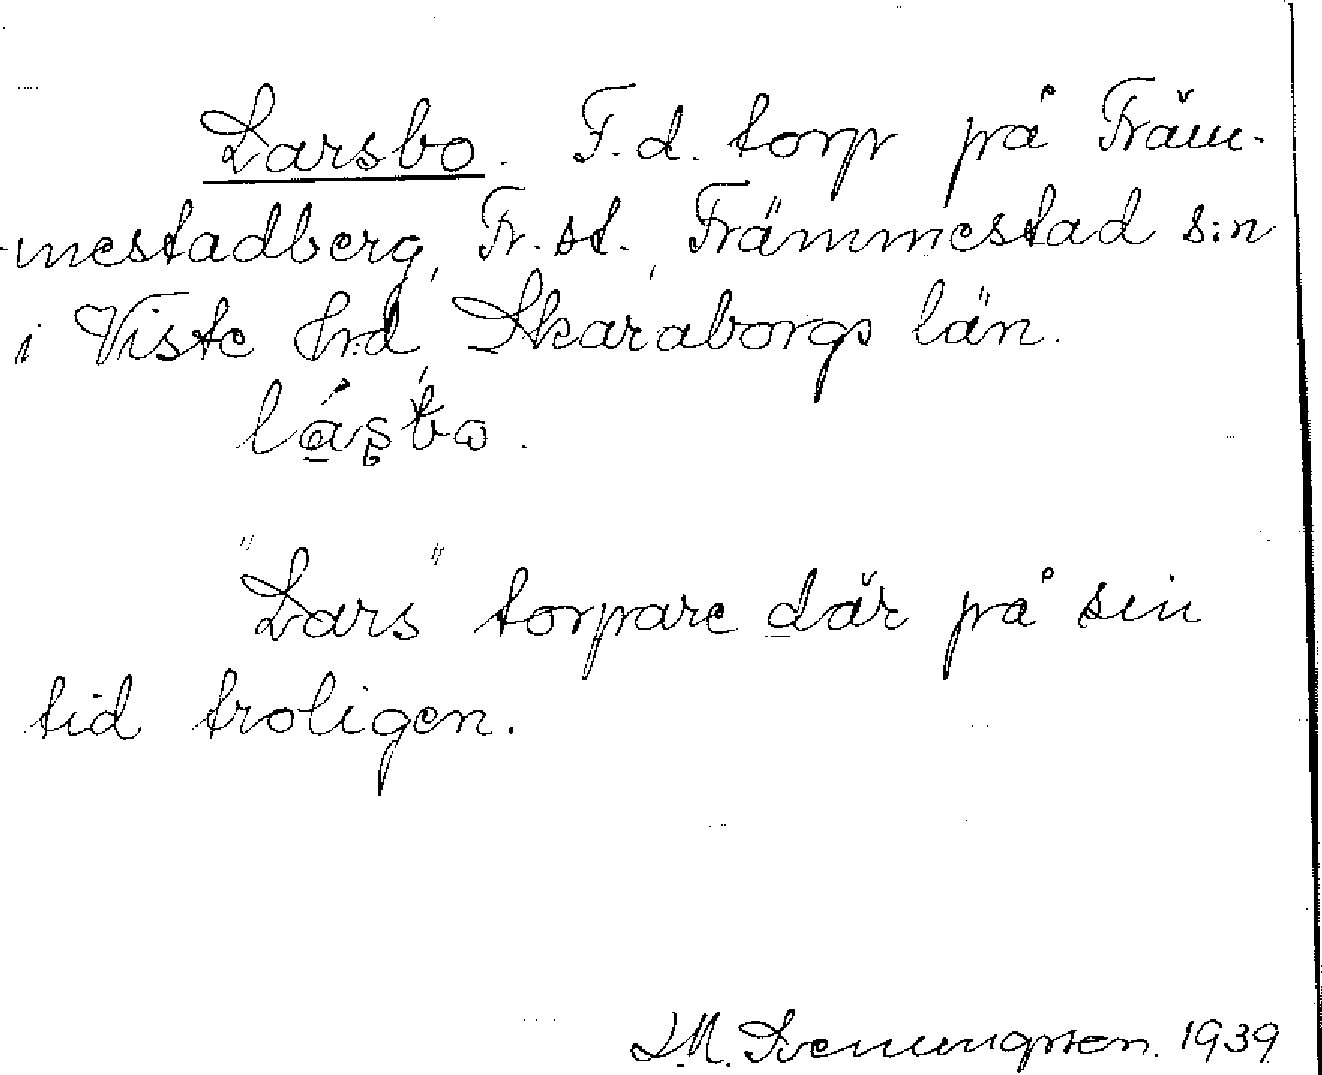 Larsbo. F.d. torp på Främ-
mestadberg, Fr. st., Främmestad s:n
i Viste hrd, Skaraborgs län.
"Lars" torpare där på sin
tid troligen.
S.M. Svenungsson. 1939